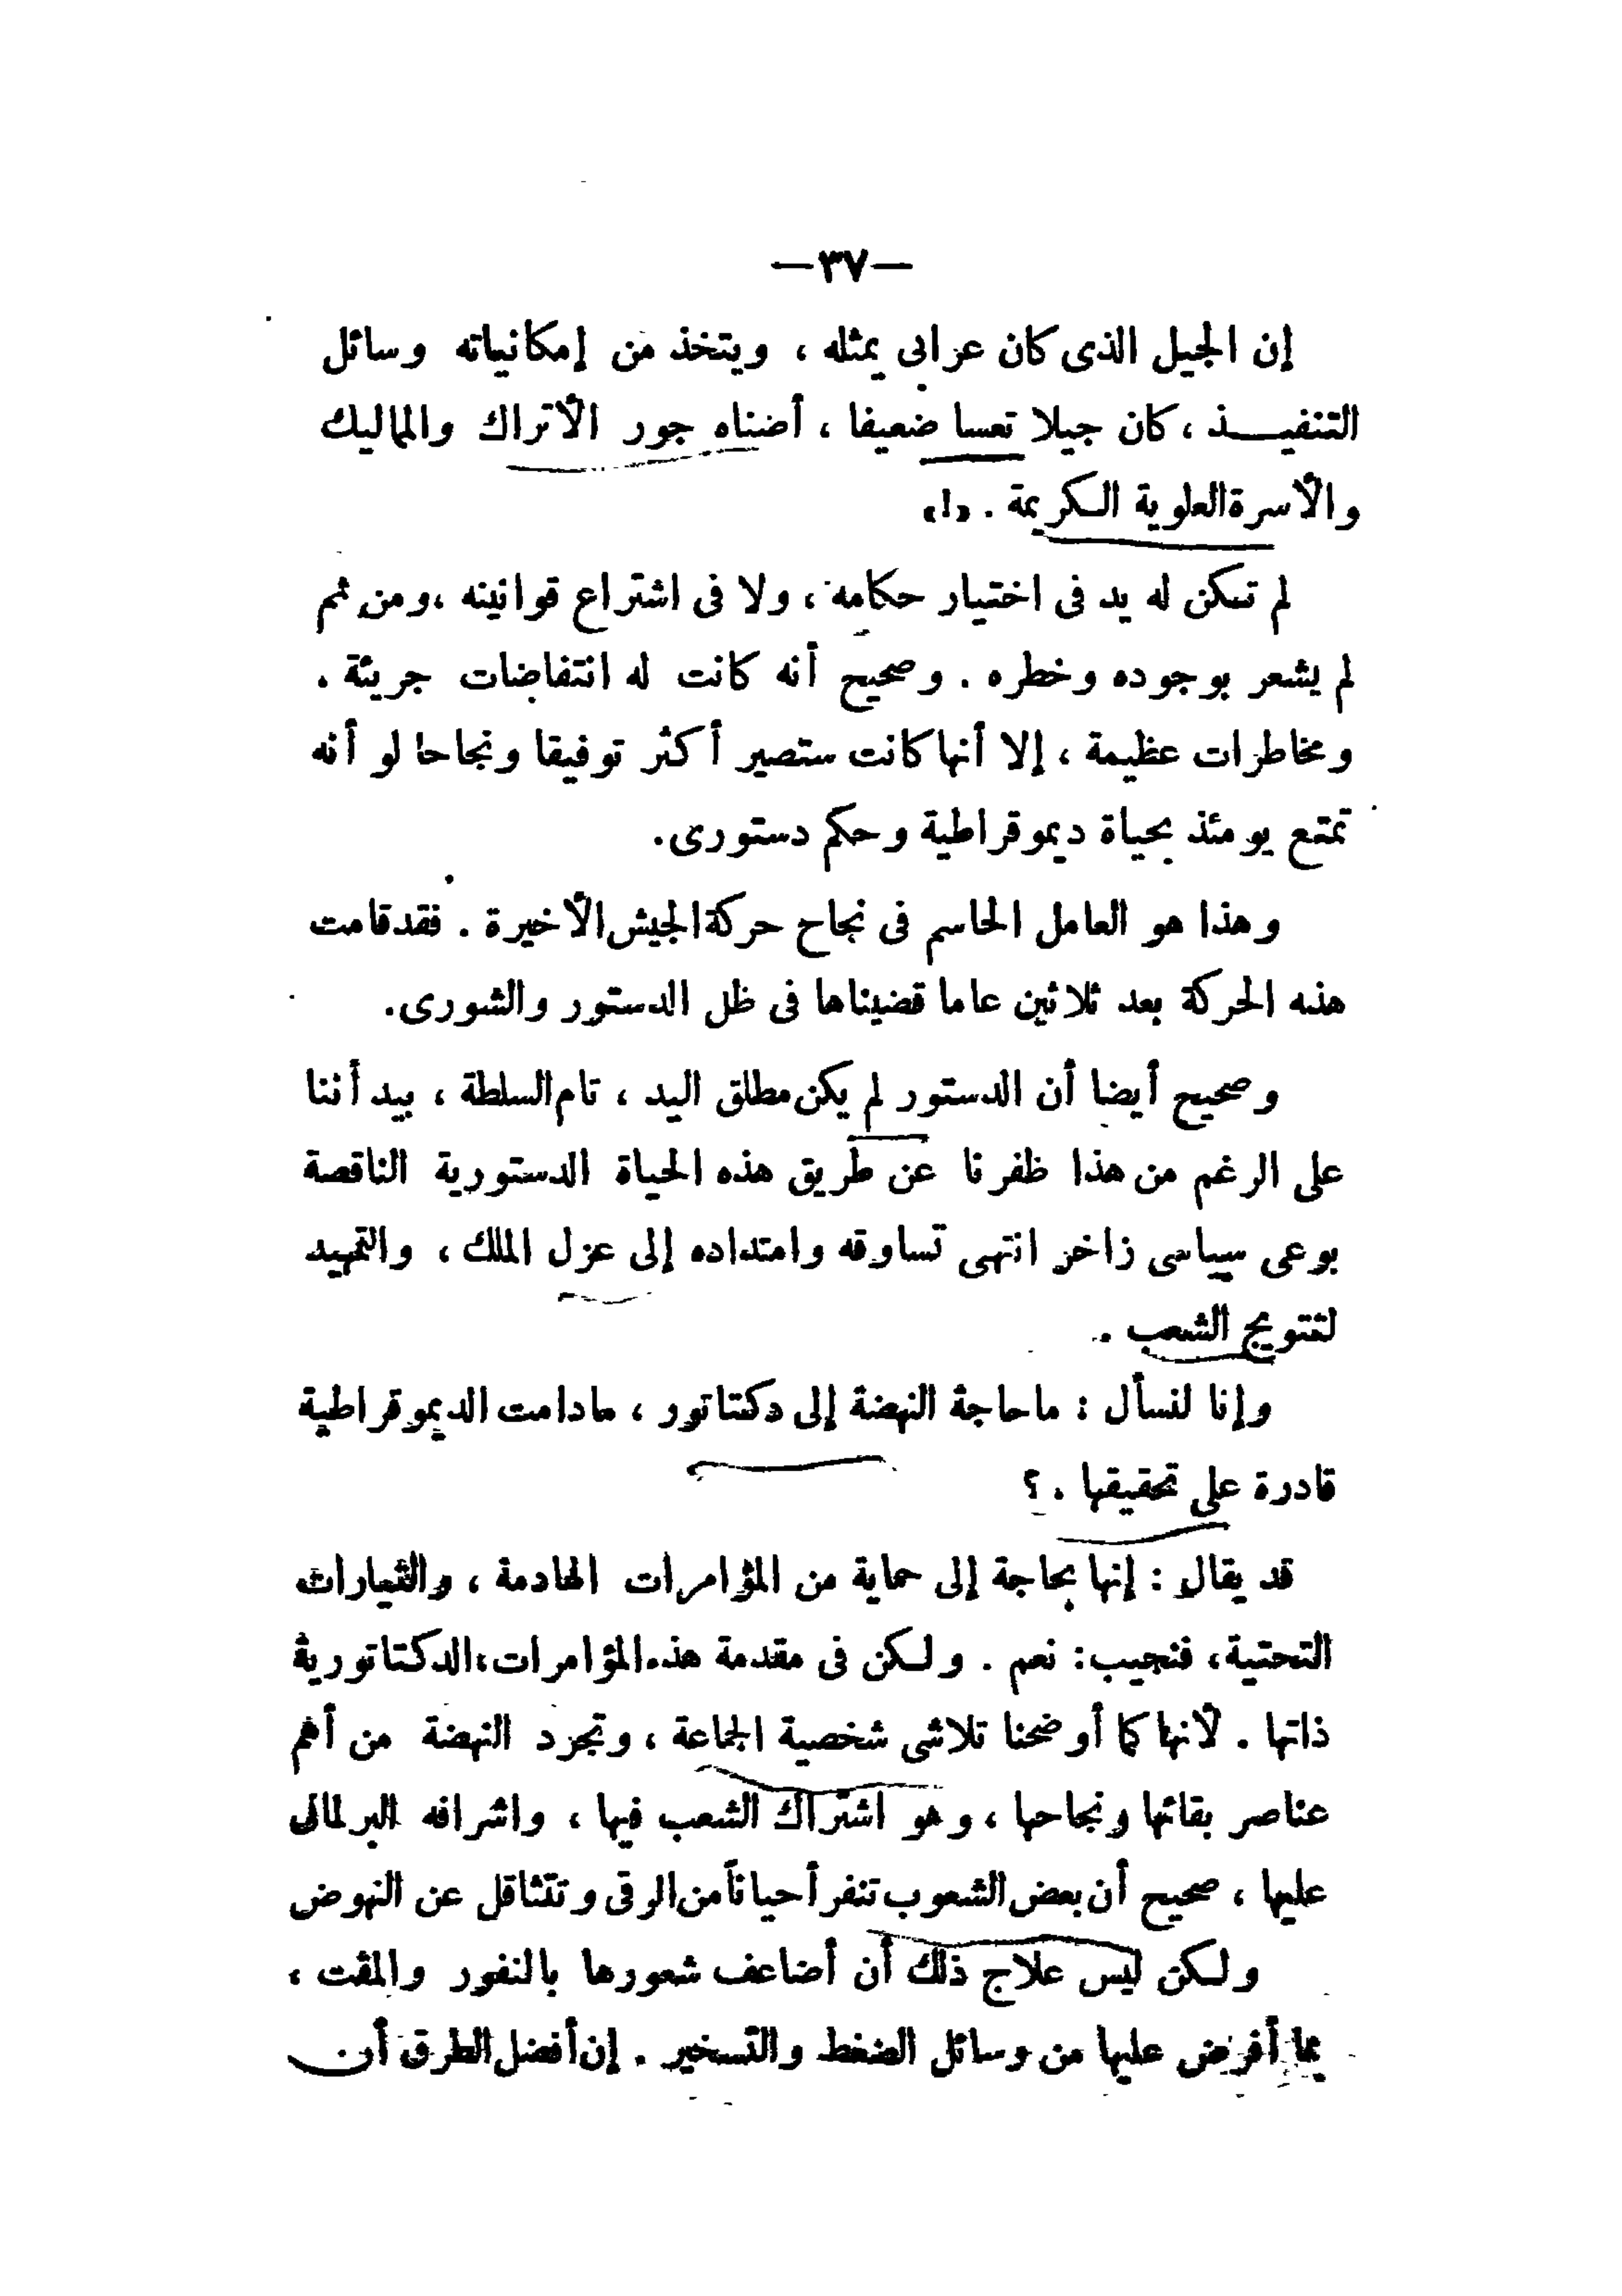 —٣٧—
إن الجيل الذى كان عرابى يمثله ، ويتخذ من إمكانياته وسائل
التنفيــذ ، كان جيلا تعسا ضعيفا ، أضناه جور الأتراك والمماليك
والأسرة العلوية الكريمة . «!»
لم تكن له يد فى اختيار حكامه ، ولا فى اشتراع قوانينه ، ومن ثم
لم يشعر بوجوده وخطره . وصحيح أنه كانت له انتفاضات جريئة .
ومخاطرات عظيمة ، إلا أنها كانت ستصير أكثر توفيقا ونجاحا لو أنه
تمتع يومئذ بحياة ديموقراطية وحكم دستورى .
وهذا هو العامل الحاسم فى نجاح حركة الجيش الأخيرة . فقد قامت
هذه الحركة بعد ثلاثين عاما قضيناها فى ظل الدستور والشورى .
وصحيح أيضا أن الدستور لم يكن مطلق اليد ، تام السلطة ، بيد أننا
على الرغم من هذا ظفرنا عن طريق هذه الحياة الدستورية الناقصة
بوعى سياسى زاخر انتهى تساوقه وامتداده إلى عزل الملك ، والتمهيد
لتتويج الشعب .
وإنا لنسأل : ما حاجة النهضة إلى دكتاتور ، مادامت الديموقراطية
قادرة على تحقيقها . ؟
قد يقال : إنها بحاجة إلى حماية من المؤامرات الهادمة ، والتيارات
التحتية ، فنجيب : نعم . ولكن فى مقدمة هذه المؤامرات ، الدكتاتورية
ذاتها . لأنها كما أوضحنا تلاشى شخصية الجماعة ، وتجرد النهضة من أهم
عناصر بقائها ونجاحها ، وهو اشتراك الشعب فيها ، واشرافه البرلمانى
عليها ، صحيح أن بعض الشعوب تنفر أحياناً من الرقى وتتثاقل عن النهوض
ولكن ليس علاج ذلك أن أضاعف شعورها بالنفور والمقت ،
بما أفرض عليها من وسائل الضغط والتسخير . إن أفضل الطرق أن